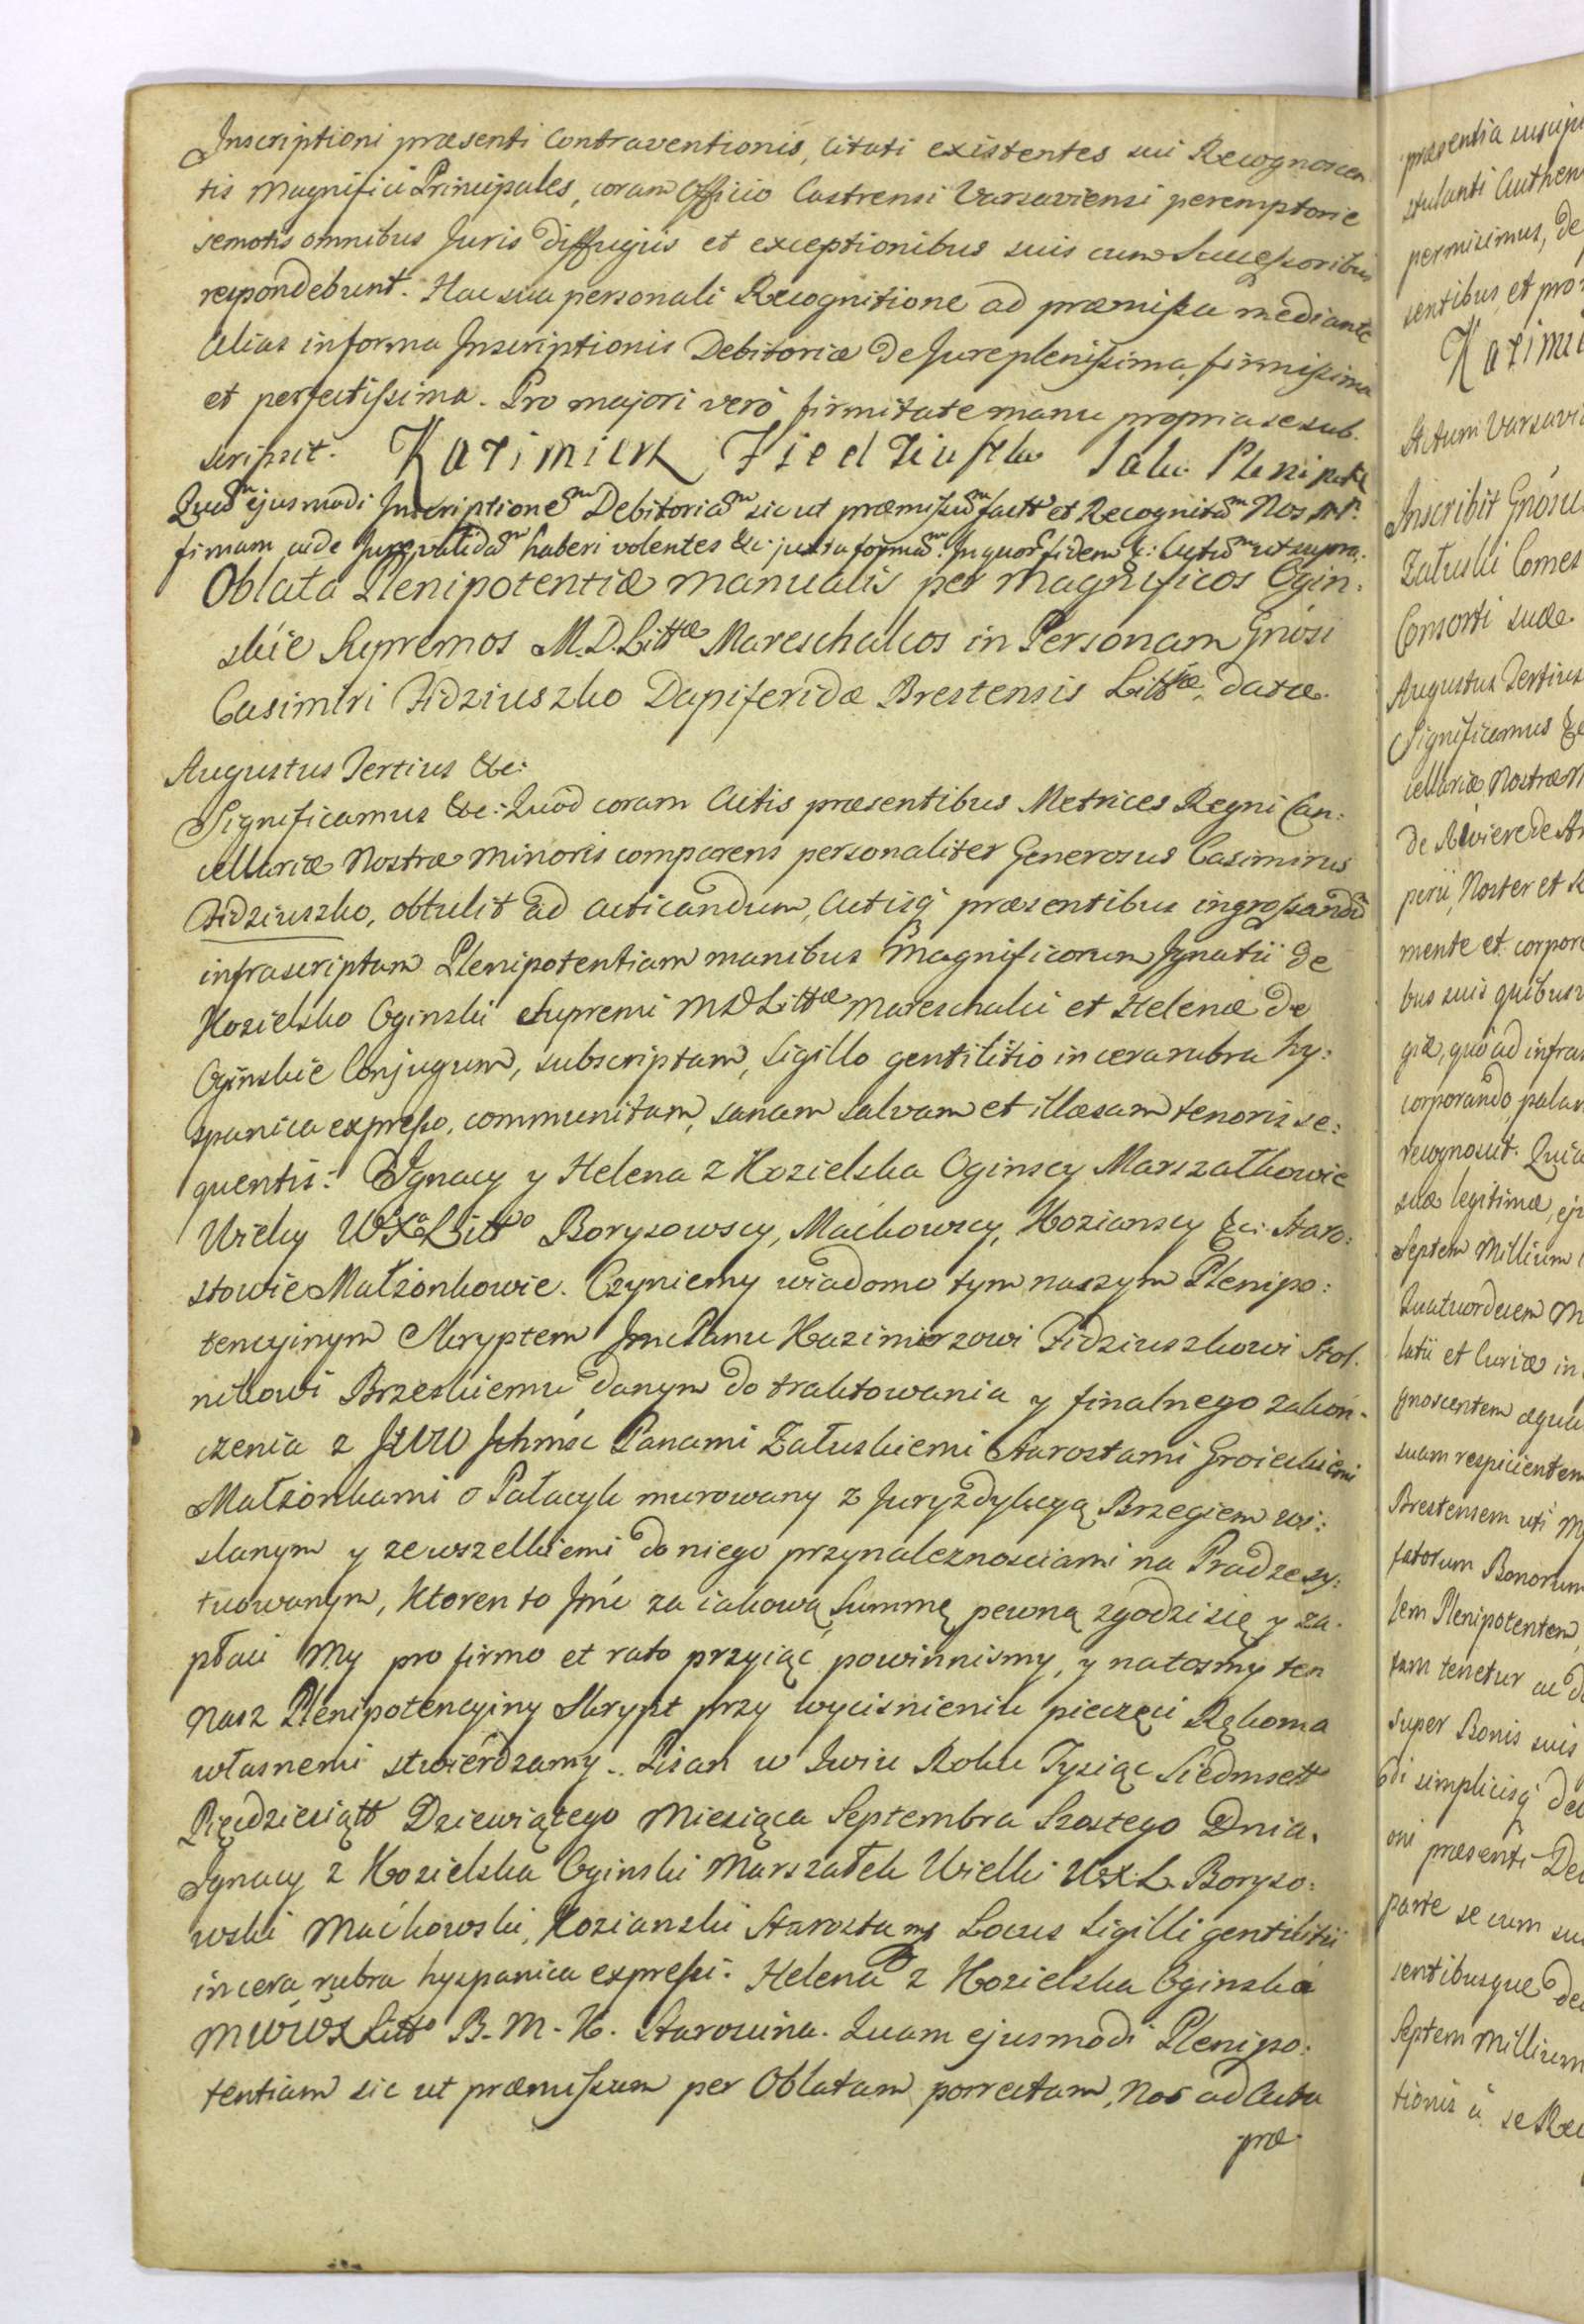 Inscriptioni præsenti Contraventionis, Citati existentes sui Recognoscen
tis Magnifici Principales, coram Officio Castrensi Varsaviensi peremptorie
semotis omnibus Juris diffugiis et exceptionibus suis cum Successoribus
respondebunt. Hac sua personali Recognitione ad præmissa mediante
Alias in forma Inscriptionis Debitoriæ de Jure plenissima, firmissima
et perfectissima. Pro majori verò firmitate manu propria se sub.
scripsit. Kazimierz
Quā ejusmodi Inscriptionē Debitoriā sic ut præmissū factā et Recognitā Nos
firmam validā haberi volentes &c: juxta formā. In quor fidem &: Actū ut supra.
Oblata Plenipotentiæ manualis per Magnificos Ogin:
skie Supremos M.D.Littæ Mareschalcos in Personam Gnosi
Casimiri Fidziuszko Dapiferidæ Brestensis Littiæ, datæ.
Augustus Tertius &c:
Significamus &c: Quod coram Actis præsentibus Metrices Regni Can:
cellariæ Nostræ Minoris comparens personaliter Generosus Casimirus
Fidziuszko, obtulit ad acticandum, Actisq præsentibus ingrossandū
infrascriptam Plenipotentiam manibus Magnificorum Ignatii de
Kozielsko Oginski Supremi MD Littæ Mareschalci et Helenæ de
Oginskie Conjugum, subscriptam, Sigillo gentilitio in cera rubra hy:
spanica expresso, communitam, sanam salvam et illæsam tenoris se:
quentis: Ignacy y Helena z Kozielska Oginscy Marszałkowie
Wielcy WXa Litto Borysowscy, Maćkowscy, Kozianscy &c: Staro:
stowie Małżonkowie. Czyniemy wiadomo tym naszym Plenipo:
tencyinym Skryptem Jmć Panu Kazimierzowi Fidziuszkowi Stol.
nikowi Brzeskiemu danym do traktowania y finalnego zakoń-
czenia z JWW Jchmść Panami Załuskiemi Starostami Groieckiemi
Małżonkami o Pałacyk murowany z Juryzdykcyą Brzegiem wi:
slanym y ze wszelkiemi do niego przynależnosciami na Pradze sy:
tuowanym, Ktoren to Jmć za iakową Summę pewną zgodzi się y za.
płaci My pro firmo et rato przyiąć powinnismy, y na tosmy ten
nasz Plenipotencyiny Skrypt przy wycisnieniu pieczęci Rękoma
własnemi stwierdzamy. Pisan w Iwiu Roku Tysiąc Siedmsett
Pięcdziesiątt Dziewiątego Miesiąca Septembra Szostego Dnia.
Ignacy z Kozielska Oginski Marszałek Wielki W.X.L. Boryso:
wski Maćkowski, Kozianski Starosta mp Locus Sigilli gentilitii
in cera rubra hyspanica expressi. Helena z Kozielska Oginska
MWWX Litto B. M. K. Starosina. Quam ejusmodi Plenipo:
tentiam sic ut præmissum per Oblatam porrectam, Nos ad Acta
præ-
stulanti Authen
permisimus, de
sentibus, et pro
Kazimi
Actum Varsavi
Inscribit Gnosu
Załuski Comes
Consorti suæ.
Augustus Tertius
Significamus &c
cellariæ Nostræ M
perii, Noster et
mente et corpore
bus suis quibusv
giæ, quo ad infras
corporando, palam
recognovit. Quia
suæ legitimæ, ej
Septem Millium
Quatuordecem M
latii et Curiæ in
gnoscentem æqua
suam respicientem
Brestensem uti M
fatorum Bonorum
lem Plenipotentem
tam tenetur ac d
super Bonis suis
di simplicisq de
oni præsenti De
parte se cum su
sentibusque de
Septem Millium
tionis à se Re